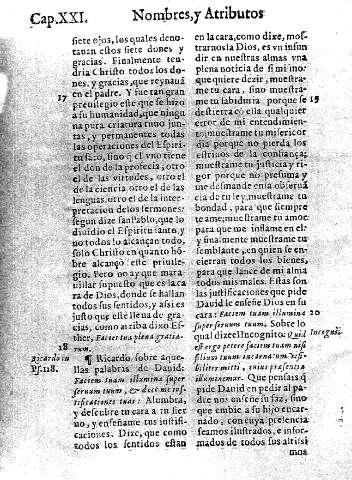 Cap.XXI. Nombres, y Atributos
siete ojos, los quales deno-
tauan estos siete dones y
gracias. Finalmente ten-
dria Christo todos los do-
nes, y gracias, que reynauã
en el padre. Y fue tan gran
17
preuilegio este que se hizo
a su humanidad, que ningu
na pura criatura tuuo jun-
tas, y permanentes todas
las operaciones del Espiri-
tu santo, sino q̃ el vno tiene
el don de la profecia, otro
el de las virtudes, otro el
de la ciencia otro el de las
lenguas. otro el de la inter-
pretacion de los sermones:
segun dize san Pablo, que lo
diuidio el Espiritu santo, y
no todos lo alcançan todo,
solo Christo en quanto hõ-
bre alcançò este priuile-
gio. Pero no ay que mara-
uillar supuesto que es la ca
ra de Dios, donde se hallan
todos sus sentidos, y assi es
justo que este llena de gra-
cias, como arriba dixo Es-
ther, Facies tua plena gratia-
rum.
18
Ricardo in
Ps.118.
¶ Ricardo sobre aque-
llas palabras de Dauid:
Faciem tuam illumina super
seruum tuum, & doce me ius-
tificationes tuas: Alumbra,
y descubre tu cara a tu sier
uo, y enseñame tus justifi-
caciones. Dize, que como
todos los sentidos estan
en la cara, como dixe, mos-
trarnos la Dios, es vn infun
dir en nuestras almas vna
plena noticia de si mismo:
que quiere dezir, muestra-
me tu cara, sino muestra-
me tu sabiduria porque se
19
destierre cõ ella qualquier
error de mi entendimien-
to, muestrame tu misericor
dia porque no pierda los
estribos de la confiança;
muestrame tu justicia y ri-
gor porque no presuma y
me desmande en la obseruã
cia de tu ley, muestrame tu
bondad, para que siempre
te ame; muestrame tu amor
para que me inflame en el;
y finalmente muestrame tu
semblante, en quien se en-
cierran todos los bienes,
para que lance de mi alma
todos mis males. Estas son
las justificaciones que pide
Dauid le enseñe Dios en su
cara: Faciem tuam illumina
20
super seruum tuum. Sobre lo
qual dize el Incognito: Quid
Incognit.
est ergo petere faciem tuam nisi
filium tuum incarnatum visi-
biliter mitti, cuius præsentia
illuminemur. Que pensais q̃
pide Dauid en pedir al pa-
dre nos enseñe su faz, sino
que embie a su hijo encar-
nado, con cuya presencia
seamos ilustrados, e infor-
mados de todos sus altissi
mos